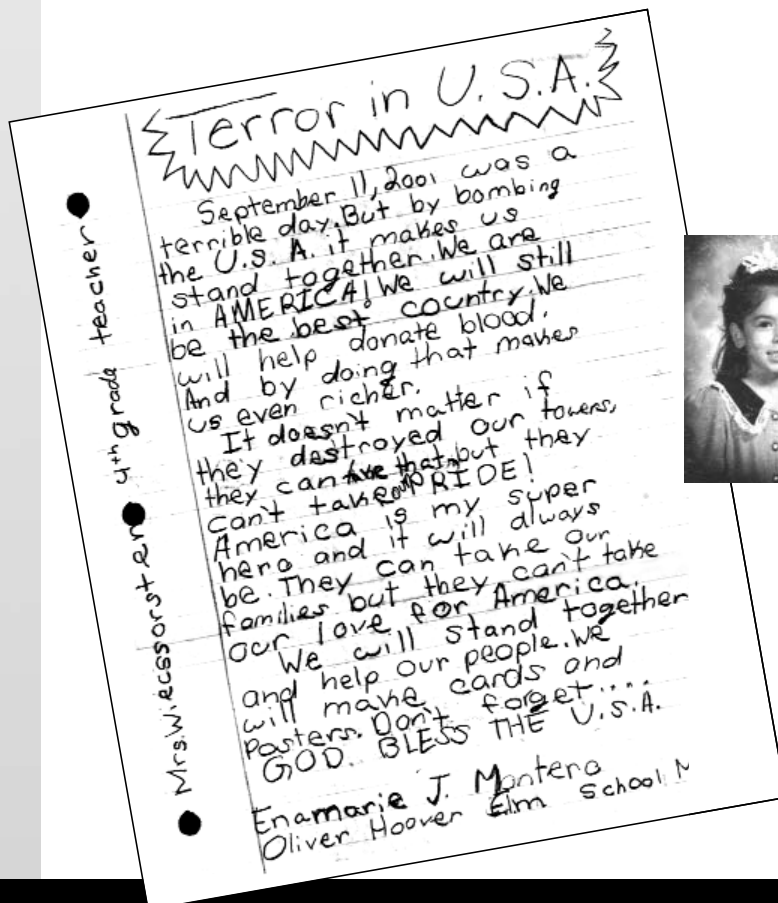 Terror in U.S.A.
September 11, 2001 was a
terrible day. But by bombing
the U.S.A. it makes us
stand together. We are
in AMERICA! We will still
be the best country. We
will help donate blood.
And by doing that makes
us even richer.
It doesn't matter if
they destroyed our towers,
they can have that, but they
can't take our PRIDE!
America is my super
hero and it will always
be. They can take our
families but they can't take
our love for America.
We will stand together
and help our people. We
will make cards and
Posters. Don't forget....
GOD. BLESS THE U.S.A.
Enamarie J. Montero
Oliver Hoover Elm School
Mrs. Wiecssorster 4th grade teacher